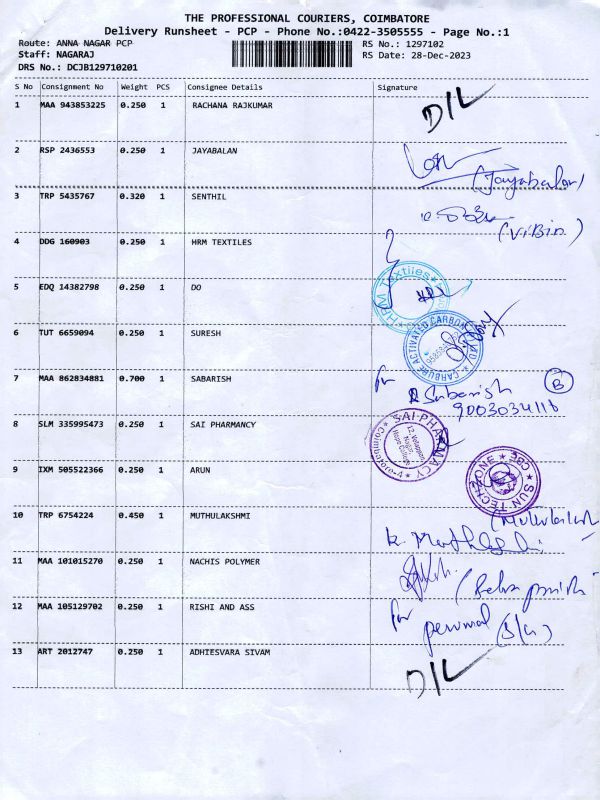 THE PROFESSIONAL COURIERS, COIMBATORE
Delivery Runsheet - PCP - Phone No.:0422-3505555 - Page No.:1
Route: ANNA NAGAR PCP
RS No.: 1297102
Staff: NAGARAJ
RS Date: 28-Dec-2023
DRS No.: DCJB129710201
S No Consignment No Weight PCS Consignee Details Signature
1 MAA 943853225 0.250 1 RACHANA RAJKUMAR D/L
2 RSP 2436553 0.250 1 JAYABALAN
(Jayabalan)
3 TRP 5435767 0.320 1 SENTHIL
(ViBin)
4 DDG 160903 0.250 1 HRM TEXTILES
5 EDQ 14382798 0.250 1 DO
HRM Textiles
6 TUT 6659094 0.250 1 SURESH
CARBURE ACTIVATED CARBON
7 MAA 862834881 0.700 1 SABARISH
for Sabarish B
9003034116
8 SLM 335995473 0.250 1 SAI PHARMANCY
SAI PHARMACY
Coimbatore-4
9 IXM 505522366 0.250 1 ARUN
SUN TECH ZONE CBE
10 TRP 6754224 0.450 1 MUTHULAKSHMI
11 MAA 101015270 0.250 1 NACHIS POLYMER
12 MAA 105129702 0.250 1 RISHI AND ASS
for perumal
13 ART 2012747 0.250 1 ADHIESVARA SIVAM
D/L